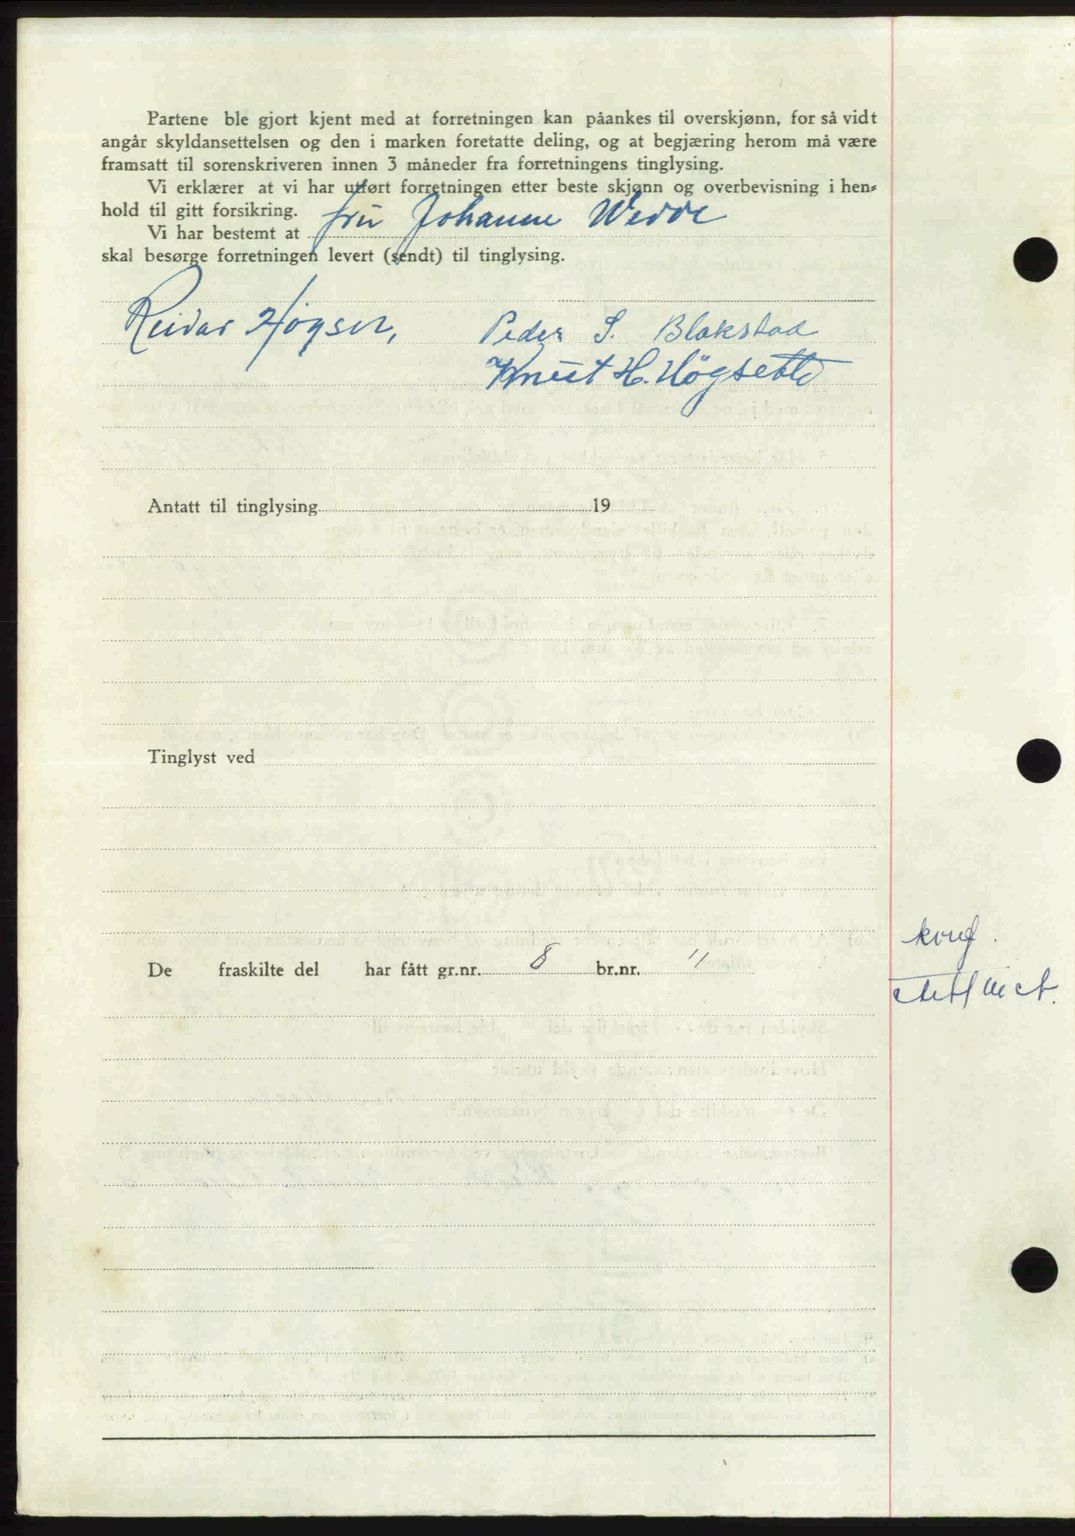 Partene ble gjort kjent med at forretningen kan påankes til overskjønn, for så vidt
angår skyldansettelsen og den i marken foretatte deling, og at begjæring herom må være
framsatt til sorenskriveren innen 3 måneder fra forretningens tinglysing.
Vi erklærer at vi har utført forretningen etter beste skjønn og overbevisning i hen-
hold til gitt forsikring.
Vi har bestemt at fru Johanne Wedde
skal besørge forretningen levert (sendt) til tinglysing.
Reidar Högset, Peder S. Blakstad
Knut H. Högsette
Antatt til tinglysing 19
Tinglyst ved
De fraskilte del har fått gr.nr. 8 br.nr. 11
konf.